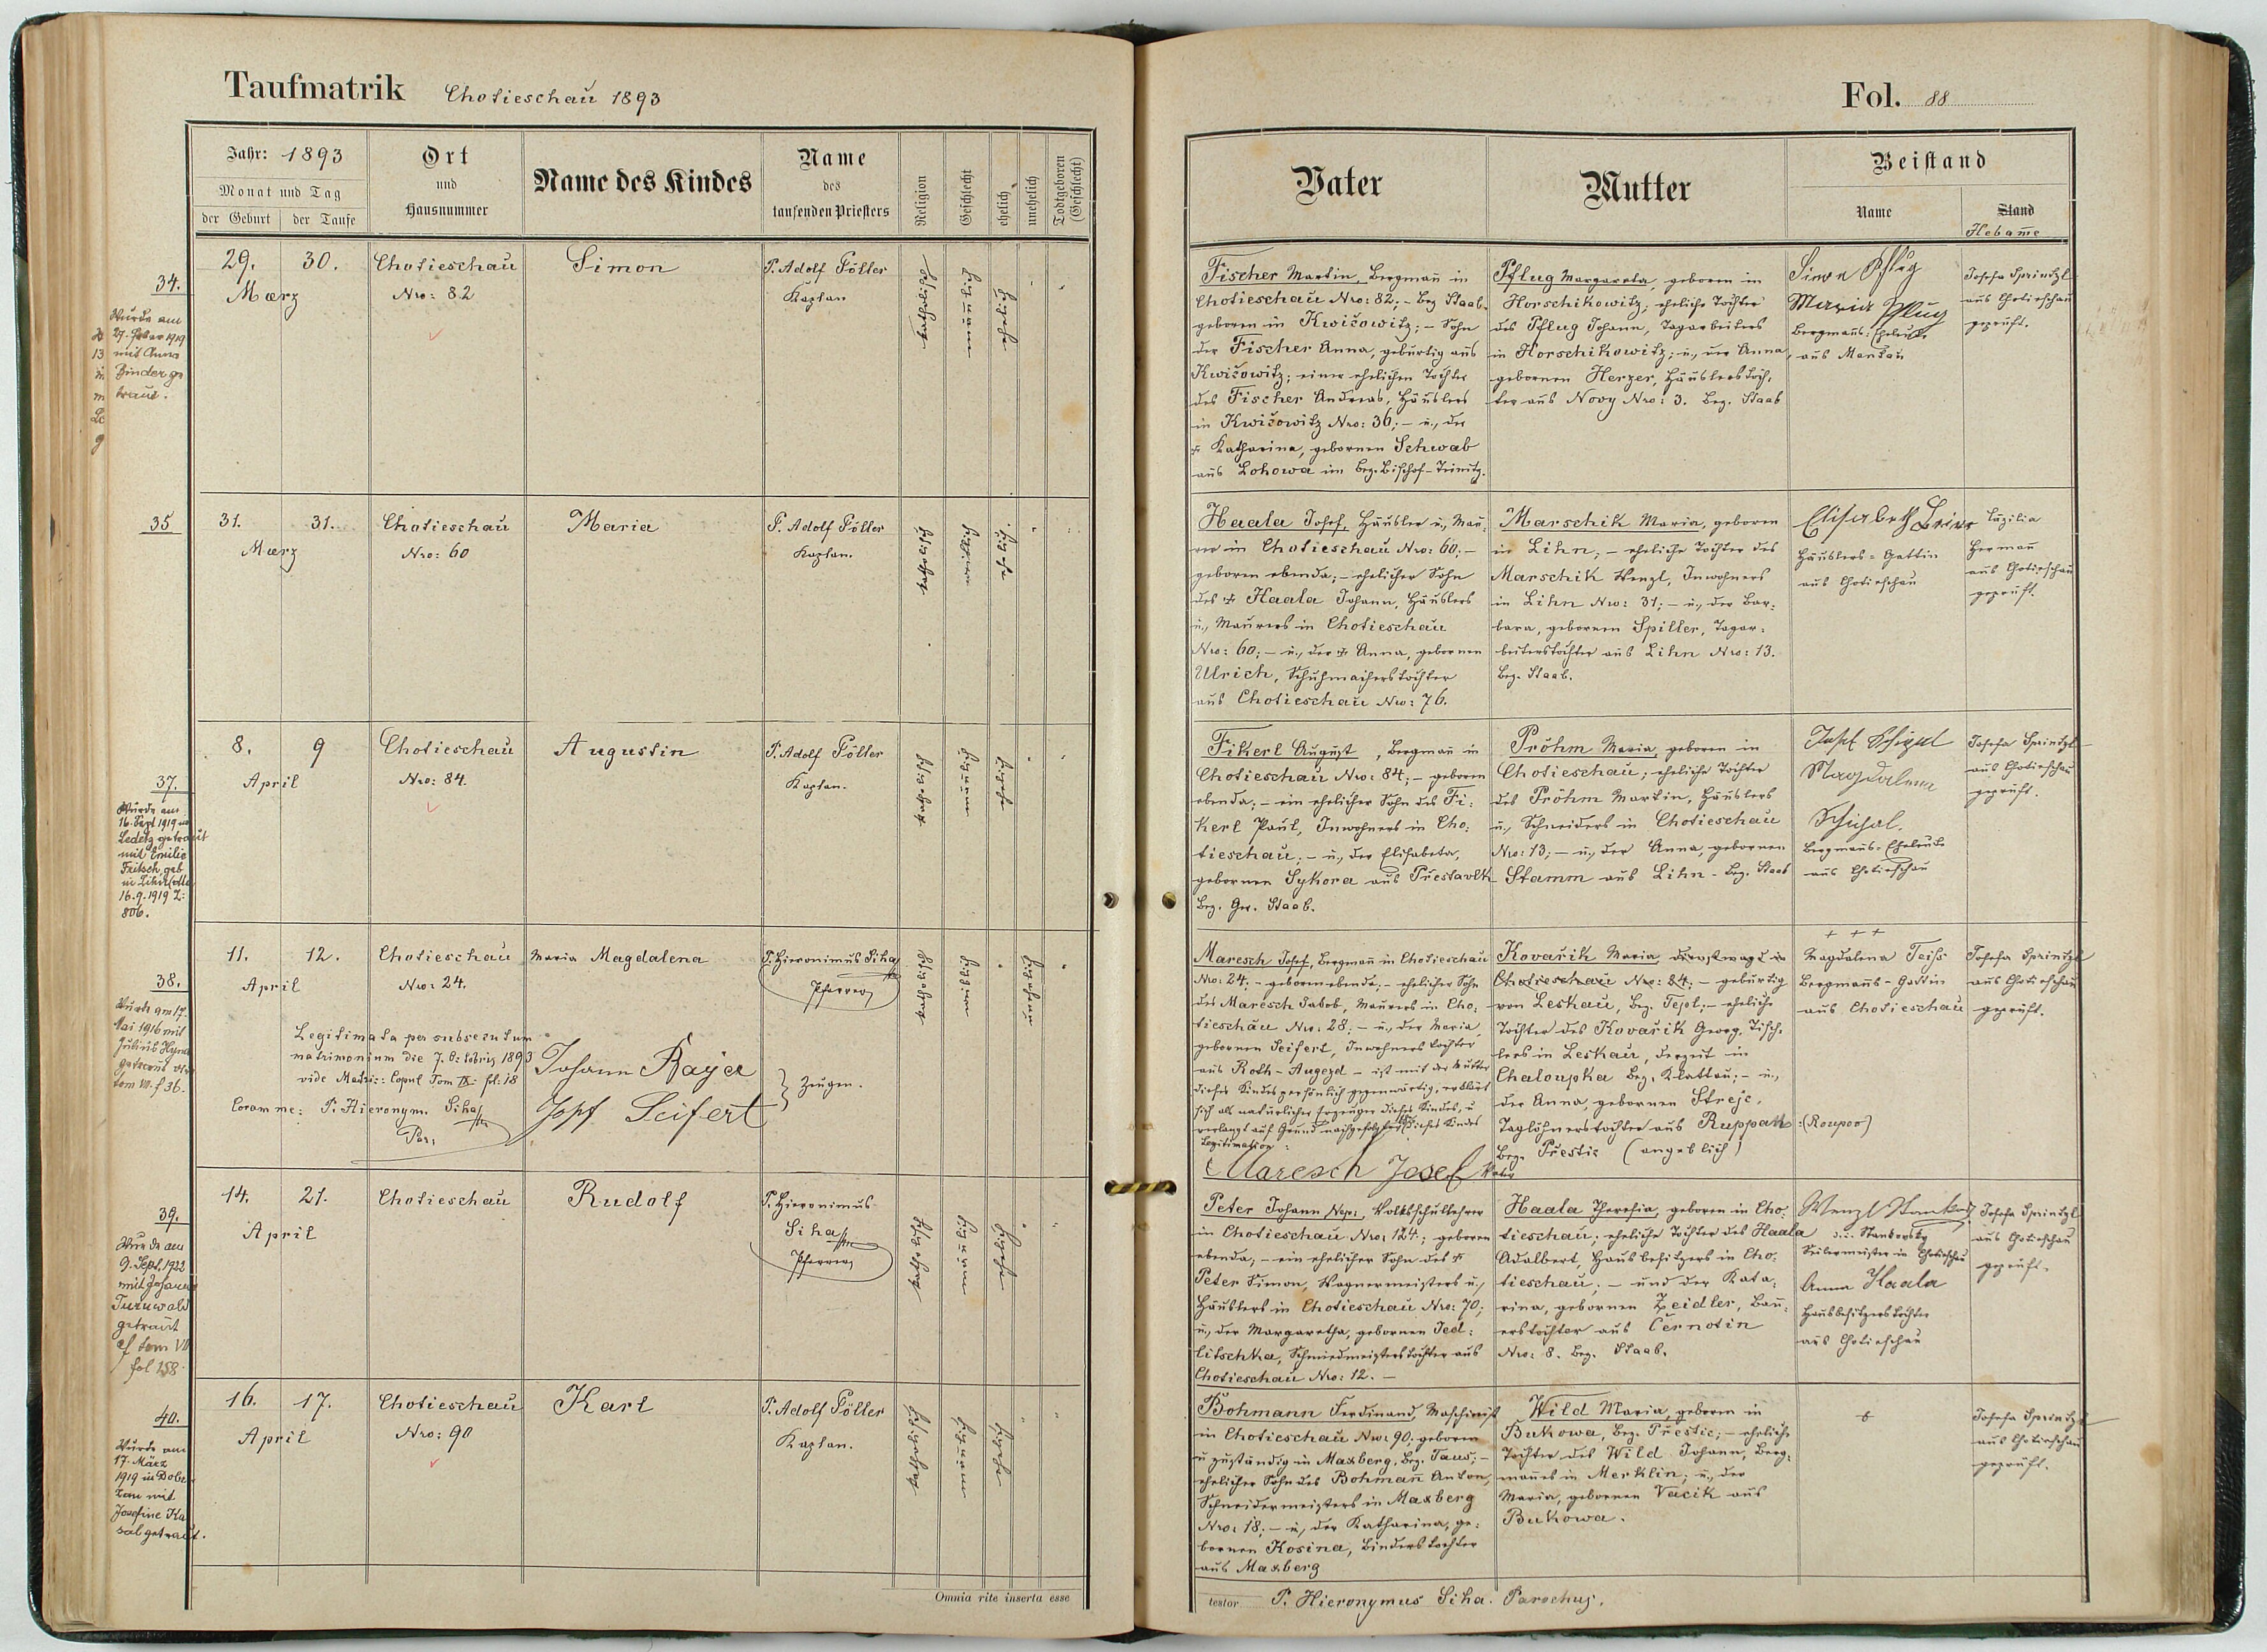 Taufmatrik Chotieschau 1893
Jahr: 1893
Monat und Tag
der Geburt
der Taufe
Ort
und
Hausnummer
Name des Kindes
Name
des
taufenden Priesters
Religion
Geschlecht
ehelich
unehelich
Todtgeboren
(Geschlecht)
34.
Wurde am
27. Feber 1919
mit Anna
Binder ge
traut.
29.
30.
März
Chotieschau
Nro: 82
Simon
P. Adolf Fölter
Kaplan
35
31.
31.
März
Chotieschau
Nro: 60
Maria
P. Adolf Fölter
Kaplan.
37.
Wurde am
16. Sept 1919 in
Ledetz getraut
mit Emilie
Fritsch geb
in Lihn
16.9.1919 Z:
806.
8.
9
April
Chotieschau
Nro: 84.
Augustin
P. Adolf Fölter
Kaplan.
38.
Wurde am 17.
Mai 1916 mit
Julius Hyna
getraut
tom VI. f 36.
11.
12.
April
Chotieschau
Nro: 24.
Maria Magdalena
P. Hieronimus Siha
Pfarrer
Legitimata per subsecutum
matrimonium die 7. Octobris 1893
vide Matric: Copul Tom IX. fol: 18
Coram me: P. Hieronym. Siha
Par.
Johann Rayer
Josef Seifert
Zeugen.
39.
Wurde am
9. Sept. 1922
mit Johanna
Turnwald
getraut
cf tom VII
fol 158
14.
21.
April
Chotieschau
Rudolf
P. Hieronimus
Siha
Pfarrer
40.
Wurde am
17. März
1919 in Dobr
zan mit
Josefine Ka
sal getraut.
16.
17.
April
Chotieschau
Nro: 90
Karl
P. Adolf Fölter
Kaplan.
Omnia rite inserta esse
Fol. 88
Vater
Mutter
Beistand
Name
Stand
Hebame
Fischer Martin, Bergman in
Chotieschau Nro: 82; - Bez Staab.
geboren in Kwičowitz; - Sohn
der Fischer Anna, gebürtig aus
Kwičowitz; einer ehelichen Tochter
des Fischer Andreas, Häuslers
in Kwičowitz Nro: 36; - u., der
Katharina, gebornen Schwab
aus Lohowa im Bez. Bischof-Teinitz.
Pflug Margareta, geboren in
Horschikowitz; eheliche Tochter
des Pflug Johann, Tagarbeiters
in Horschikowitz; u., der Anna,
gebornen Herzer, Häuslerstoch,
ter aus Novy Nro: 3. Bez. Staab
Simon Pflug
Maria Pflug
Bergmans: Eheleute
aus Mantau
Josefa Sprinzl
aus Chotieschau
geprüft.
Haala Josef, Häusler u., Mau:
rer in Chotieschau Nro: 60; -
geboren ebenda; - ehelicher Sohn
des † Haala Johann, Häuslers
u., Maurers in Chotieschau
Nro: 60; - u., der † Anna, gebornen
Ulrich, Schuhmacherstochter
aus Chotieschau Nro: 76.
Marschik Maria, geboren
in Lihn; - eheliche Tochter des
Marschik Wenzl, Inwohners
in Lihn Nro: 31; - u., der Bar:
bara, gebornen Spiller, Tagar:
beiterstochter aus Lihn Nro: 13.
Bez. Staab.
Elisabeth
Häuslers = Gattin
aus Chotieschau
Cäzilia
Herman
aus Chotieschau
geprüft.
Fikerl August, Bergman in
Chotieschau Nro: 84; - geboren
ebenda; - ein ehelicher Sohn des Fi:
kerl Paul, Inwohners in Cho:
tieschau; - u., der Elisabeta,
gebornen Sykora aus Přestavlk
Bez. Ger. Staab.
Pröhm Maria, geboren in
Chotieschau; eheliche Tochter
des Pröhm Martin, Häuslers
u., Schneiders in Chotieschau
Nro: 13; - u., der Anna, gebornen
Stamm aus Lihn - Bez. Staab
Josef Schigal
Magdalena
Schigal.
Bergmans-Eheleute
aus Chotieschau
Josefa Sprinzl
aus Chotieschau
geprüft.
Maresch Josef, Bergman in Chotieschau
Nro: 24; - geboren ebenda; - ehelicher Sohn
des Maresch Jakob, Maurers in Cho:
tieschau Nro: 28; - u., der Maria,
gebornen Seifert, Inwohnerstochter
aus Roth-Augezd - ist mit der Mutter
dieses Kindes persönlich gegenwärtig, erklärt
sich als natürlicher Erzeuger dieses Kindes, u
verlangt auf Grund nachgefolgter dieses Kindes
Legitimation:
Maresch Josef Vater
Kovařik Maria, Dienstmagd in
Chotieschau Nro: 24; - gebürtig
von Leskau, Bez. Tepl; - eheliche
Tochter des Kovařik Georg, Tisch,
lers in Leskau, derzeit in
Chaloupka Bez. Klattau; - u.,
der Anna, gebornen Strejc,
Taglöhnerstochter aus Ruppau (Roupov)
Bez. Přestic (angeblich)
+ + +
Magdalena Teiss
Bergmanns-Gattin
aus Chotieschau
Josefa Sprinzl
aus Chotieschau
geprüft.
Peter Johann Nep:, Volksschullehrer
in Chotieschau Nro: 124; geboren
ebenda; - ein ehelicher Sohn des †
Peter Simon, Wagnermeisters u.,
Häuslers in Chotieschau Nro: 70;
u., der Margaretha, gebornen Jed:
litschka, Schmiedmeisterstochter aus
Chotieschau Nro: 12. -
Haala Theresia, geboren in Cho:
tieschau; eheliche Tochter des Haala
Adalbert, Hausbesitzers in Cho:
tieschau; - und der Kata:
rina, gebornen Zeidler, Bau:
erstochter aus Černotin
Nro: 8. Bez. Staab.
Wenzl
Stankovsky
Seilermeister in Chotieschau
Anna Haala
Hausbesitzerstochter
aus Chotieschau
Josefa Sprinzl
aus Chotieschau
geprüft.
Bohmann Ferdinand, Maschinist
in Chotieschau Nro: 90; geboren
u zuständig in Maxberg, Bez. Taus; -
ehelicher Sohn des Bohman Anton,
Schneidermeisters in Maxberg
Nro: 18; - u., der Katharina, ge:
bornen Kosina, Binderstochter
aus Maxberg
Wild Maria, geboren in
Bukowa, Bez. Přestic; - eheliche
Tochter des Wild Johann, Berg,
mannes in Merklin; u., der
Maria, gebornen Vacik aus
Bukowa.
Josefa Sprinzl
aus Chotieschau
geprüft.
testor P. Hieronymus Siha. Parochus.